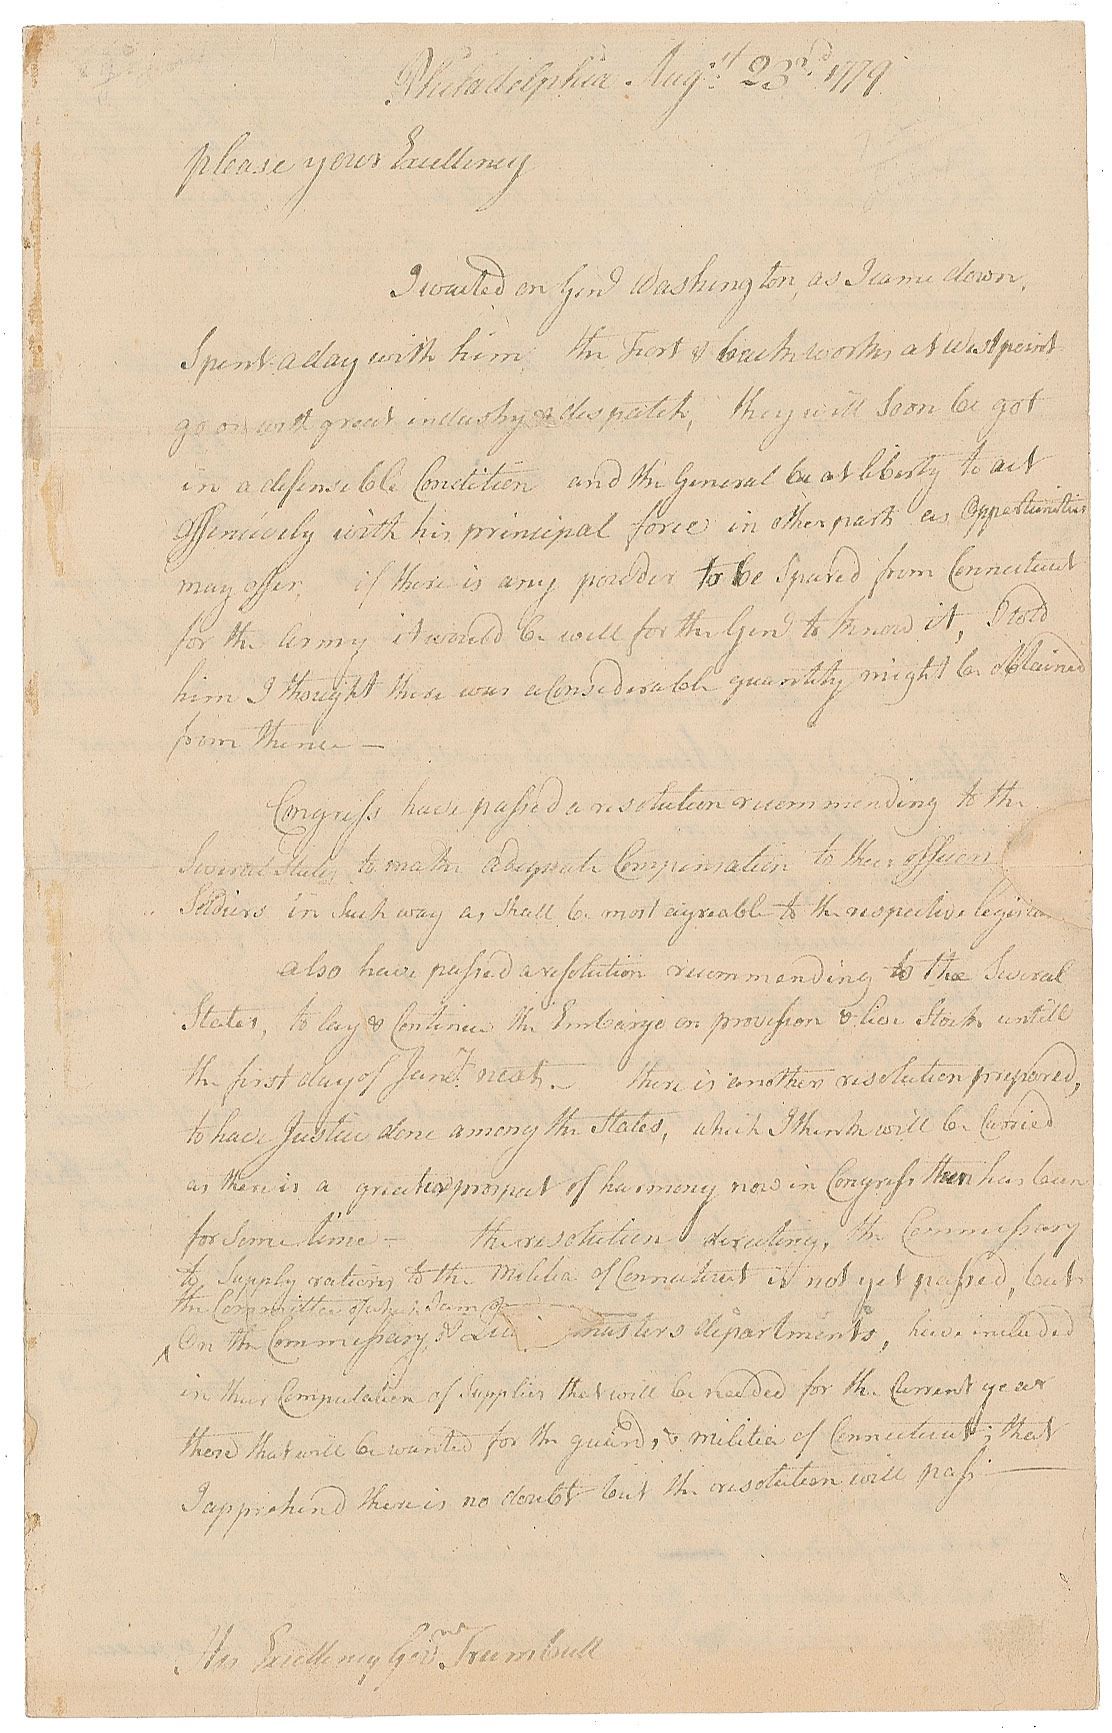 Philadelphia Augst 23rd 1779
please your Excellency
I waited on Genl Washington, as I came down,
Spent a day with him, the Fort & Earth works at West point
go on with great industry & despatch, they will soon be got
in a defensible Condition and the General be at liberty to act
Offensively with his principal force in other parts as Oppertunities
may offer, if there is any powder to be Spared from Connecticut
for the Army it would be well for the Genl to know it, I told
him I thought there was a Considerable quantity might be obtained
from thence —
Congress have passed a resolution recommending to the
Several States to make adequate Compensation to their officers
Soldiers in Such way as Shall be most agreable to the respective legisla
also have passed a resolution recommending to the Several
States, to lay & Continue the Embargo on provision & live Stock untill
the first day of Janry next — there is another resolution prepared,
to have Justice done among the States, which I think will be Carried
as there is a greater prospect of harmony now in Congress then has been
for some time — the resolution directing, the Commissary
to Supply rations to the Militia of Connecticut is not yet passed, but
the Committee of which I am one
On the Commissary & masters departments, have included
in their Computation of Supplies that will be needed for the Current year
those that will be wanted for the guards & militia of Connecticut; that
I apprehend there is no doubt but the resolution will pass —
His Excellency Govr Trumbull